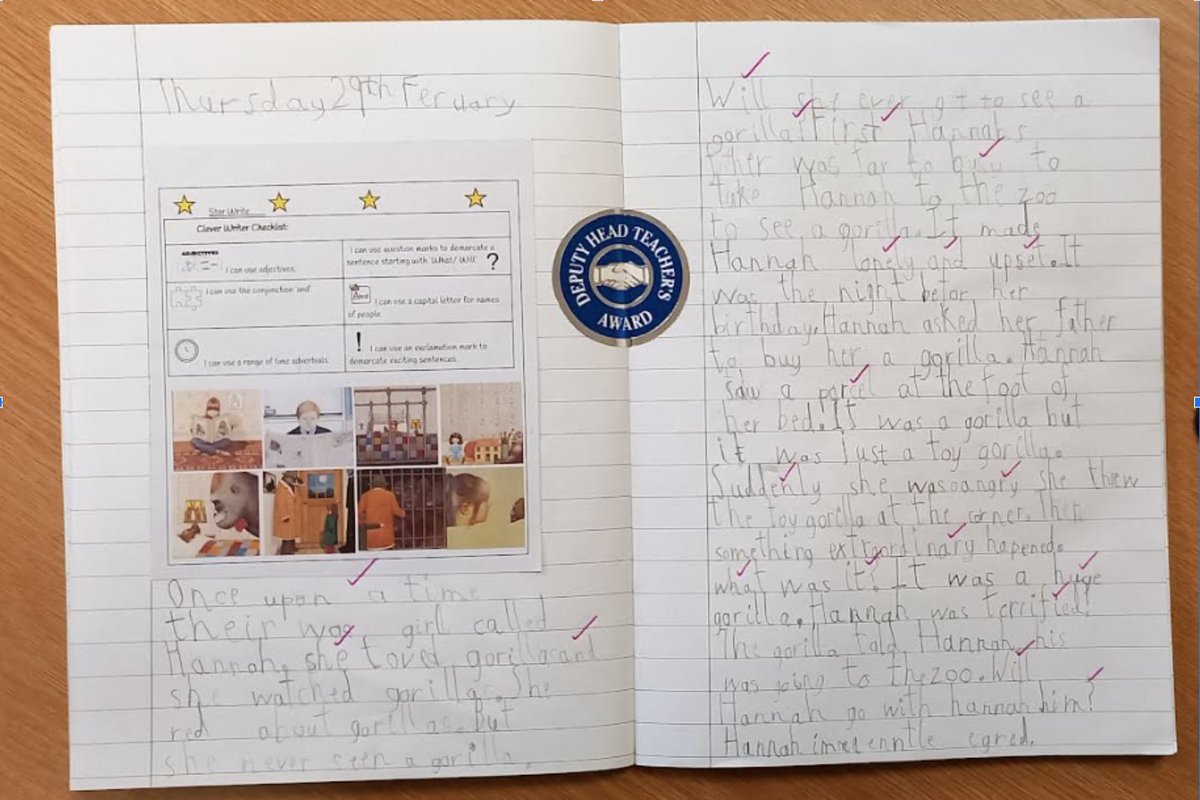 Thursday 29th Feruary
Star Write
Clever Writer Checklist:
ADJECTIVES
I can use adjectives.
I can use question marks to demarcate a
sentence starting with 'What/ Will'
?
I can use the conjunction 'and'.
I can use a capital letter for names
of people.
I can use a range of time adverbials.
!
I can use an exclamation mark to
demarcate exciting sentences.
Once upon a time
their was girl called
Hannah, she loved gorilla and
she watched gorillas. She
red about gorillas. But
she never seen a gorilla.
DEPUTY HEAD TEACHER'S
AWARD
Will she ever get to see a
gorilla? First Hannahs
father was far to busy to
take Hannah to the zoo
to see a gorilla. It made
Hannah lonely and upset. It
was the night befor her
birthday. Hannah asked her father
to buy her a gorilla. Hannah
saw a parcel at the foot of
her bed. It was a gorilla but
it was just a toy gorilla.
Suddenly she was angry she threw
the toy gorilla at the corner. Then
something extraordinary hapened.
what was it? It was a huge
gorilla. Hannah was terrified!
The gorilla told Hannah his
was going to the zoo. Will
Hannah go with hannah him?
Hannah egred.